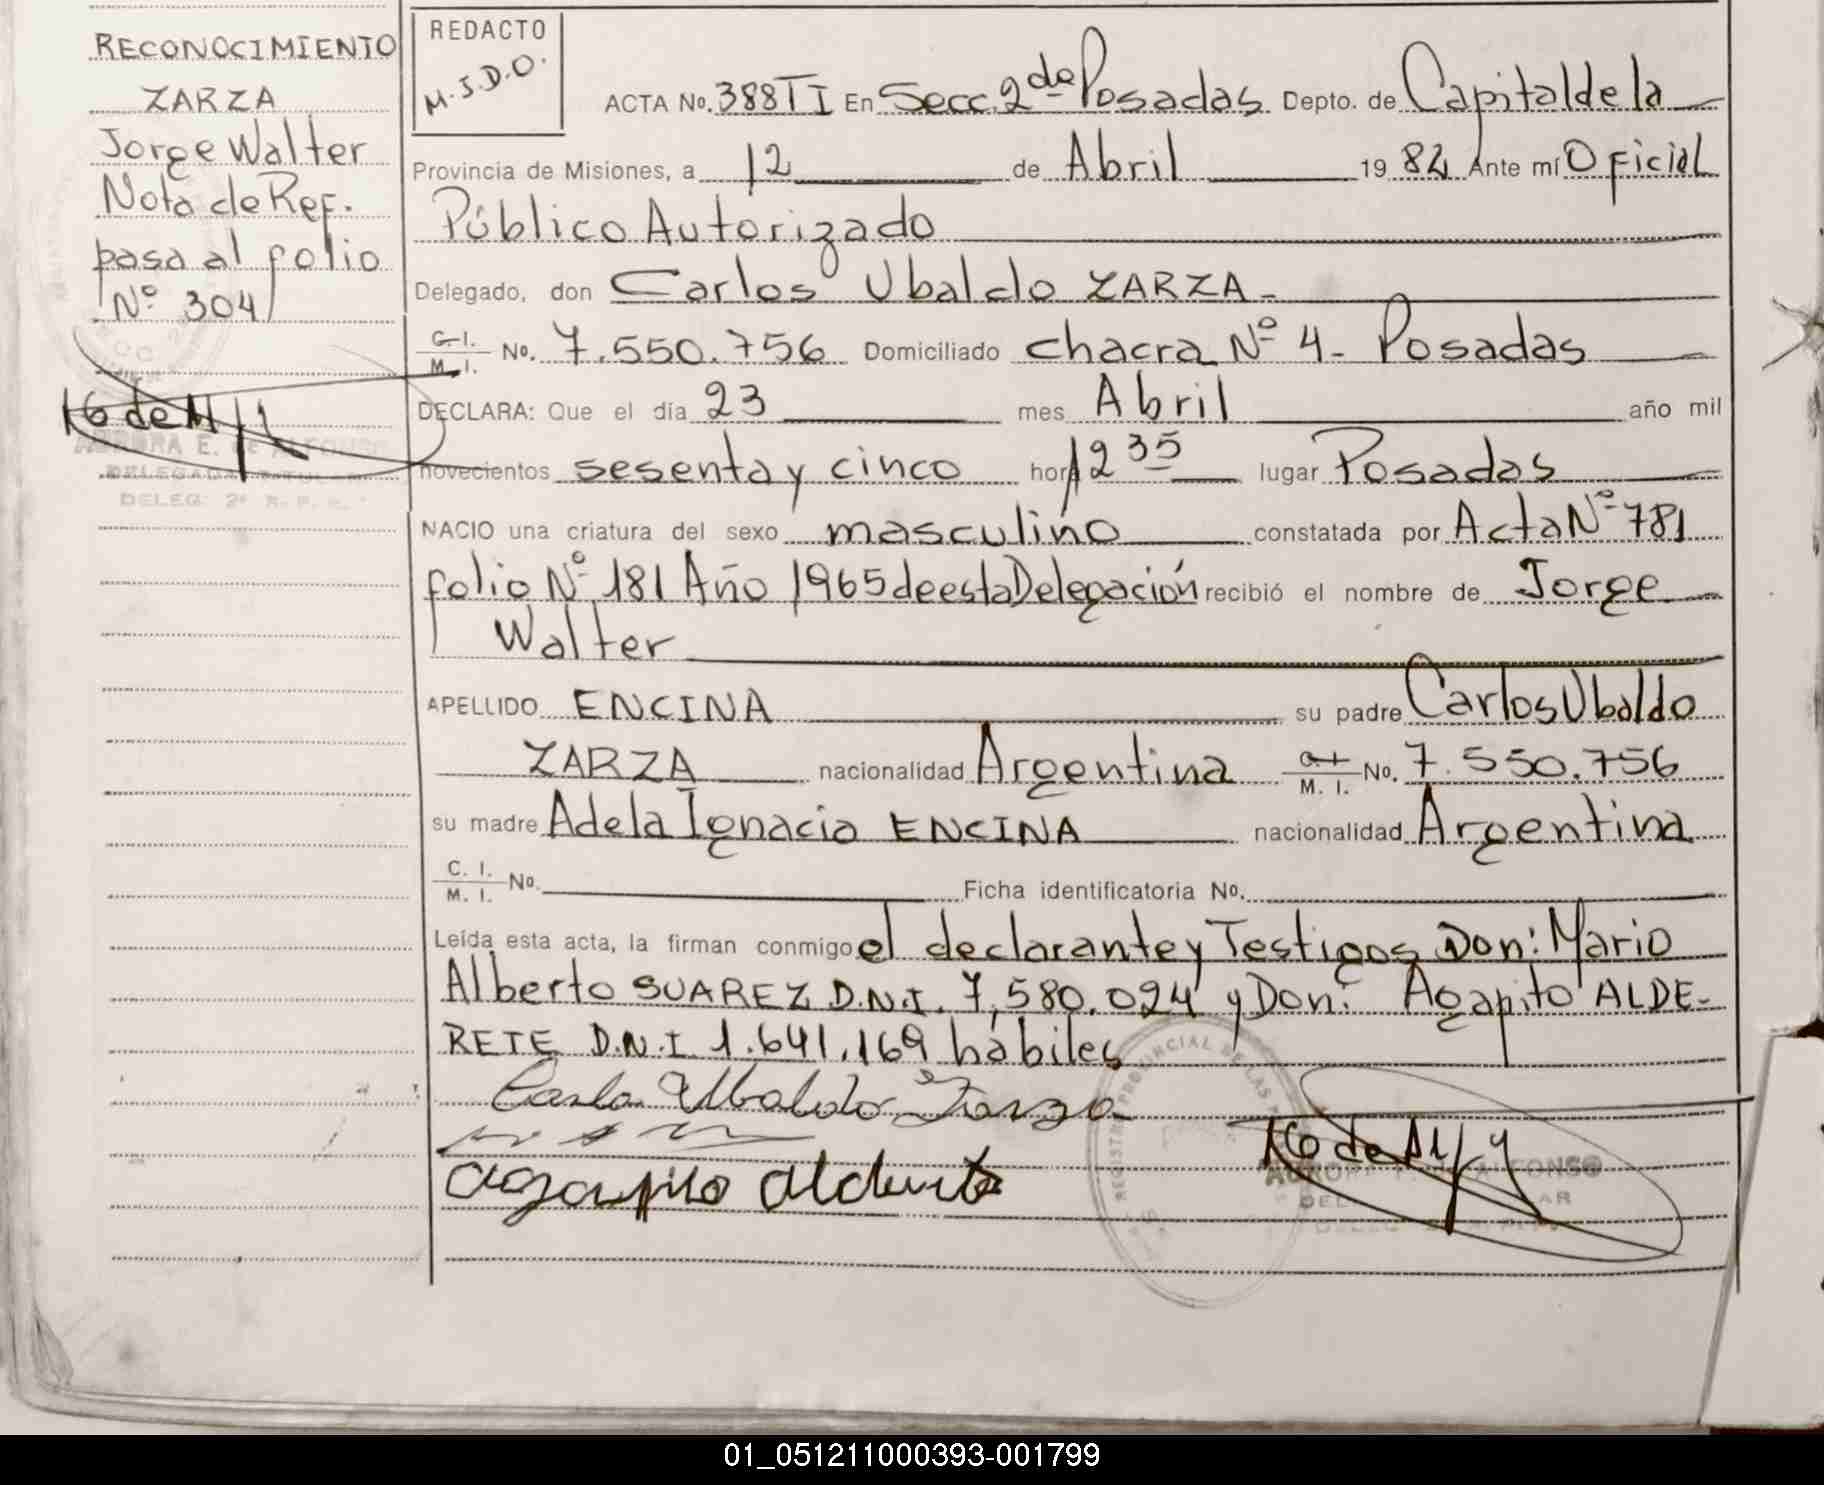 RECONOCIMIENTO
ZARZA
Jorge Walter
Nota de Ref.
pasa al folio
Nº 304
AURORA E. de ALFONSO
DELEGADA TITULAR
DELEG. 2ª R. P. P.
REDACTO
M.J.D.O.
ACTA No. 388TI En Secc. 2da Posadas Depto. de Capital de la
Provincia de Misiones, a 12 de Abril 1982 Ante mí Oficial
Público Autorizado
Delegado, don Carlos Ubaldo ZARZA-
C.I. M.I. No. 7.550.756 Domiciliado chacra Nº 4- Posadas
DECLARA: Que el día 23 mes Abril año mil
novecientos sesenta y cinco hora 12 35 lugar Posadas
NACIO una criatura del sexo masculino constatada por Acta Nº 781
folio Nº 181 Año 1965 de esta Delegación recibió el nombre de Jorge
Walter
APELLIDO ENCINA su padre Carlos Ubaldo
ZARZA nacionalidad Argentina C.I. M. I. No. 7.550.756
su madre Adela Ignacia ENCINA nacionalidad Argentina
C. I. M. I. No. Ficha identificatoria No.
Leída esta acta, la firman conmigo el declarante y Testigos Don: Mario
Alberto SUAREZ D.N.I. 7.580.024 y Don: Agapito ALDE-
RETE D.N.I 1.641.169 hábiles
Carlos Ubaldo Zarza
Agapito Alderete
REGISTRO PROVINCIAL DE LAS
AURORA ALFONSO
01_051211000393-001799